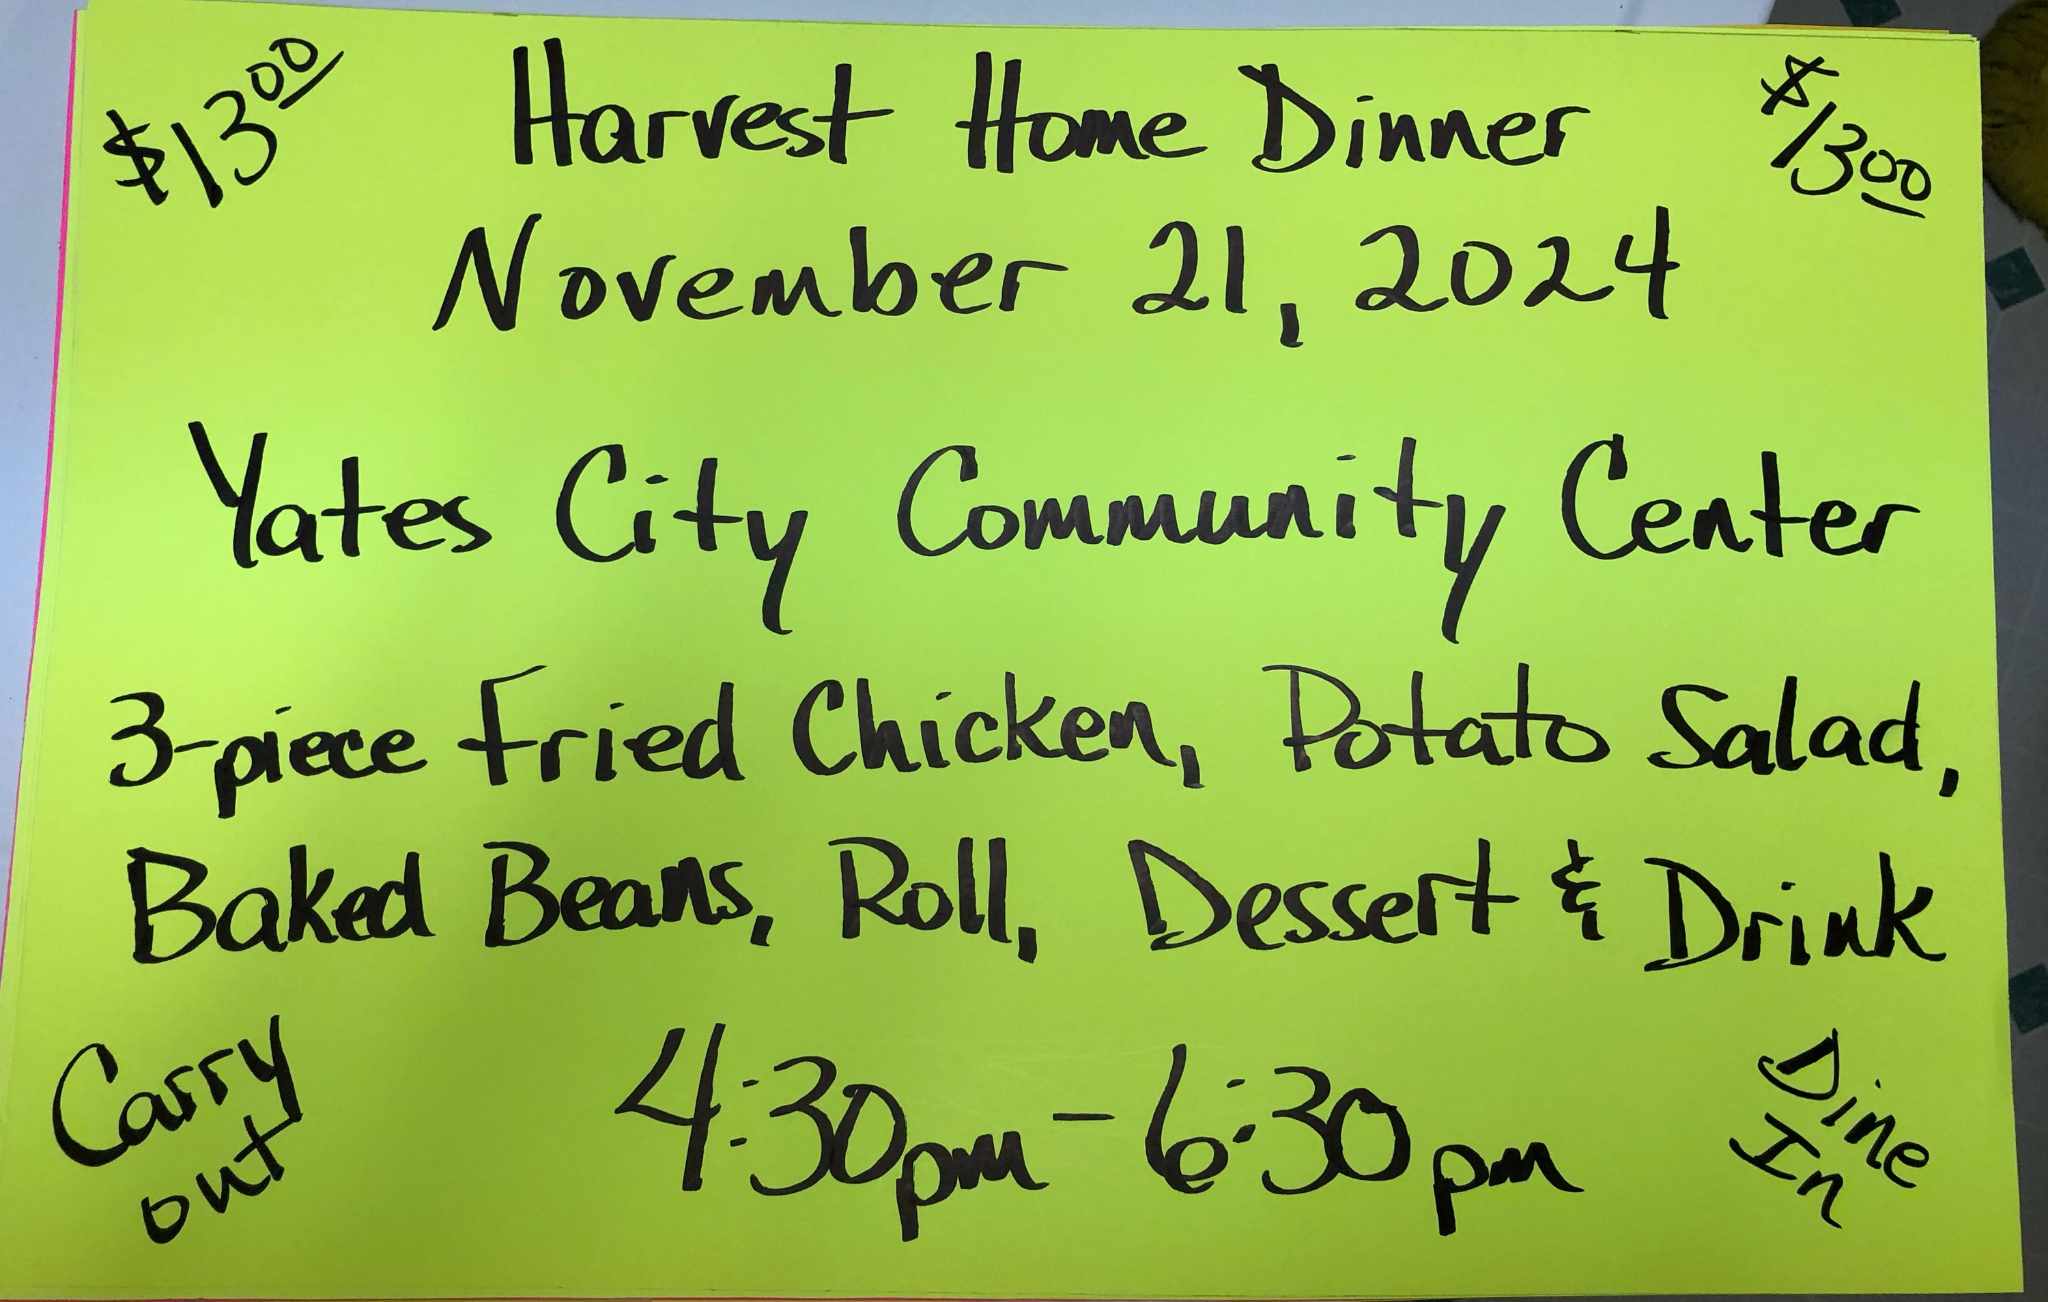 $13.00
Harvest Home Dinner
$13.00
November 21, 2024
Yates City Community Center
3-piece Fried Chicken, Potato Salad,
Baked Beans, Roll, Dessert & Drink
Carry
out
4:30pm - 6:30pm
Dine
In